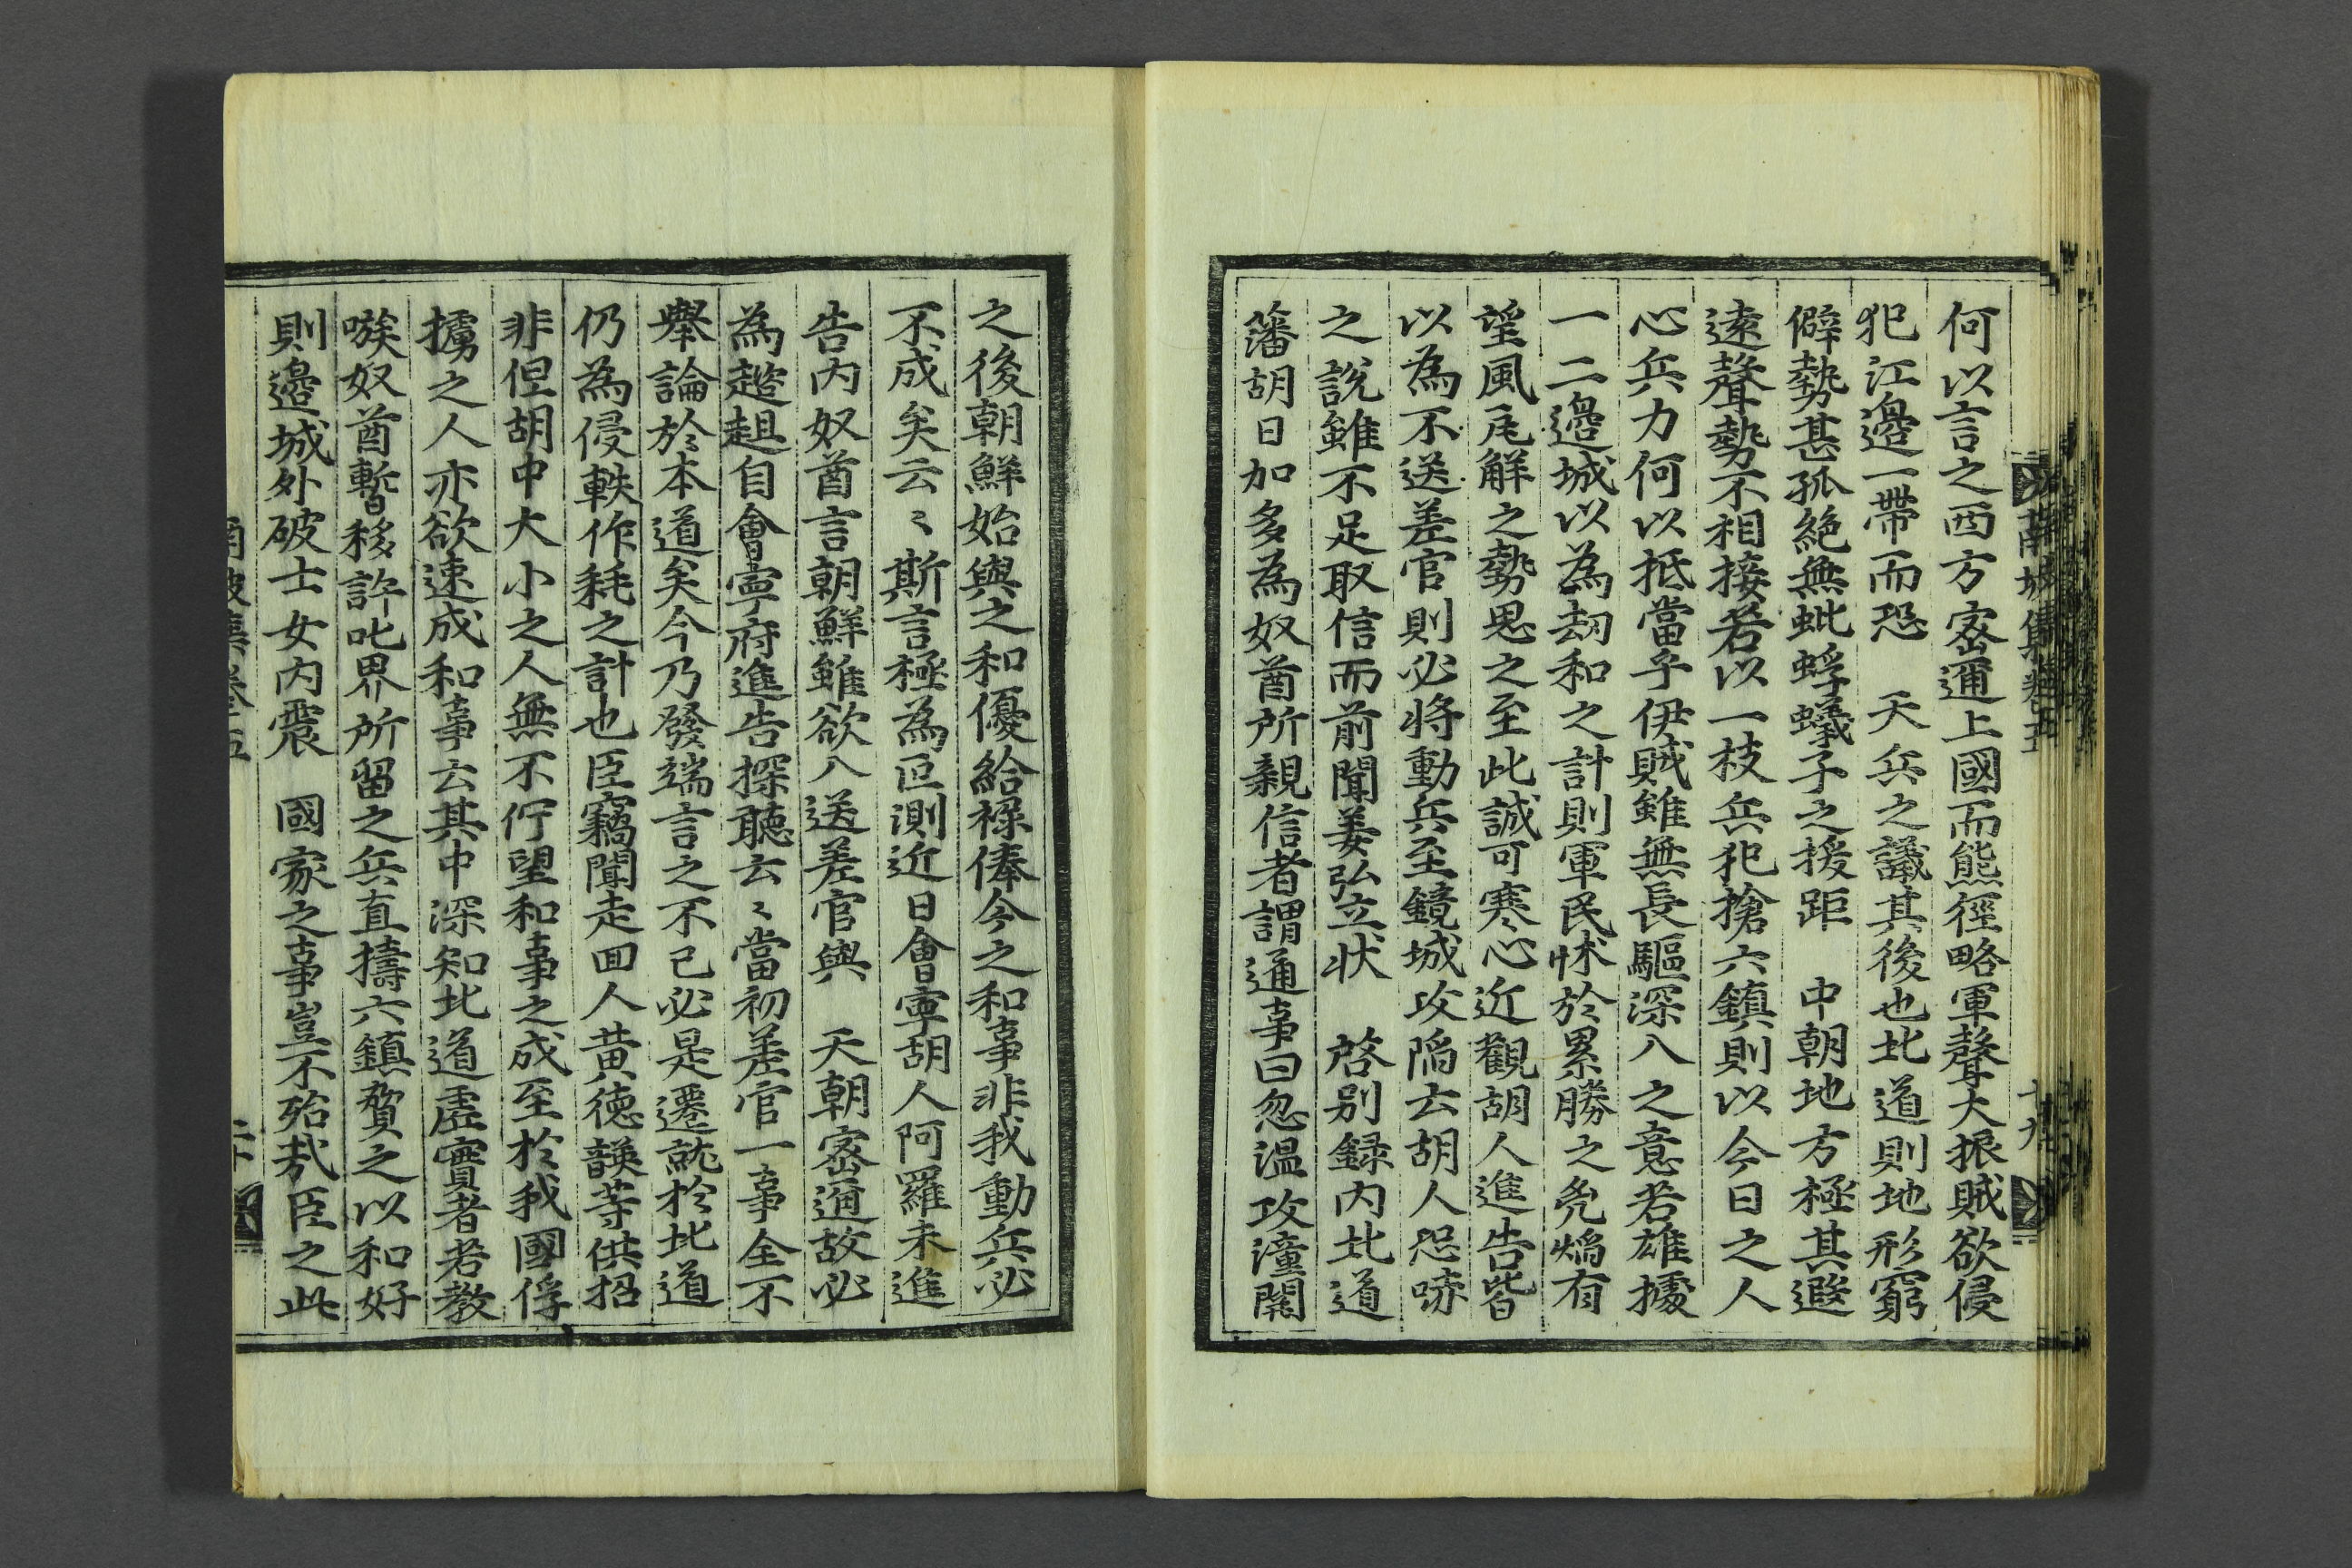 何以言之西方密邇上國而熊徑略軍聲大振賊欲侵
犯江邊一帶而恐 天兵之議其後也北道則地形窮
僻勢甚孤絶無蚍蜉蟻子之援距 中朝地方極其遐
遠聲勢不相接若以一枝兵犯搶六鎮則以今日之人
心兵力何以抵當乎伊賊雖無長驅深入之意若雄據
一二邊城以爲刦和之計則軍民怵於累勝之兇焰有
望風瓦解之勢思之至此誠可寒心近觀胡人進告皆
以爲不送差官則必將動兵至鏡城攻陷云胡人恐嚇
之說雖不足取信而前聞姜弘立狀 啓別錄內北道
藩胡日加多爲奴酋所親信者謂通事曰忽溫攻潼關
之後朝鮮始與之和優給祿俸今之和事非我動兵必
不成矣云〻斯言極爲叵測近日會寧胡人阿羅未進
告內奴酋言朝鮮雖欲入送差官與 天朝密邇故必
爲趑趄自會寧府進告探聽云〻當初差官一事全不
擧論於本道矣今乃發端言之不已必是遷就於北道
仍爲侵軼作耗之計也臣竊聞走回人黃德韺等供招
非但胡中大小之人無不佇望和事之成至於我國俘
擄之人亦欲速成和事云其中深知北道虛實者若教
嗾奴酋暫移許叱界所留之兵直擣六鎮贄之以和好
則邊城外破士女內震 國家之事豈不殆哉臣之此
南坡集卷五
十九
二十